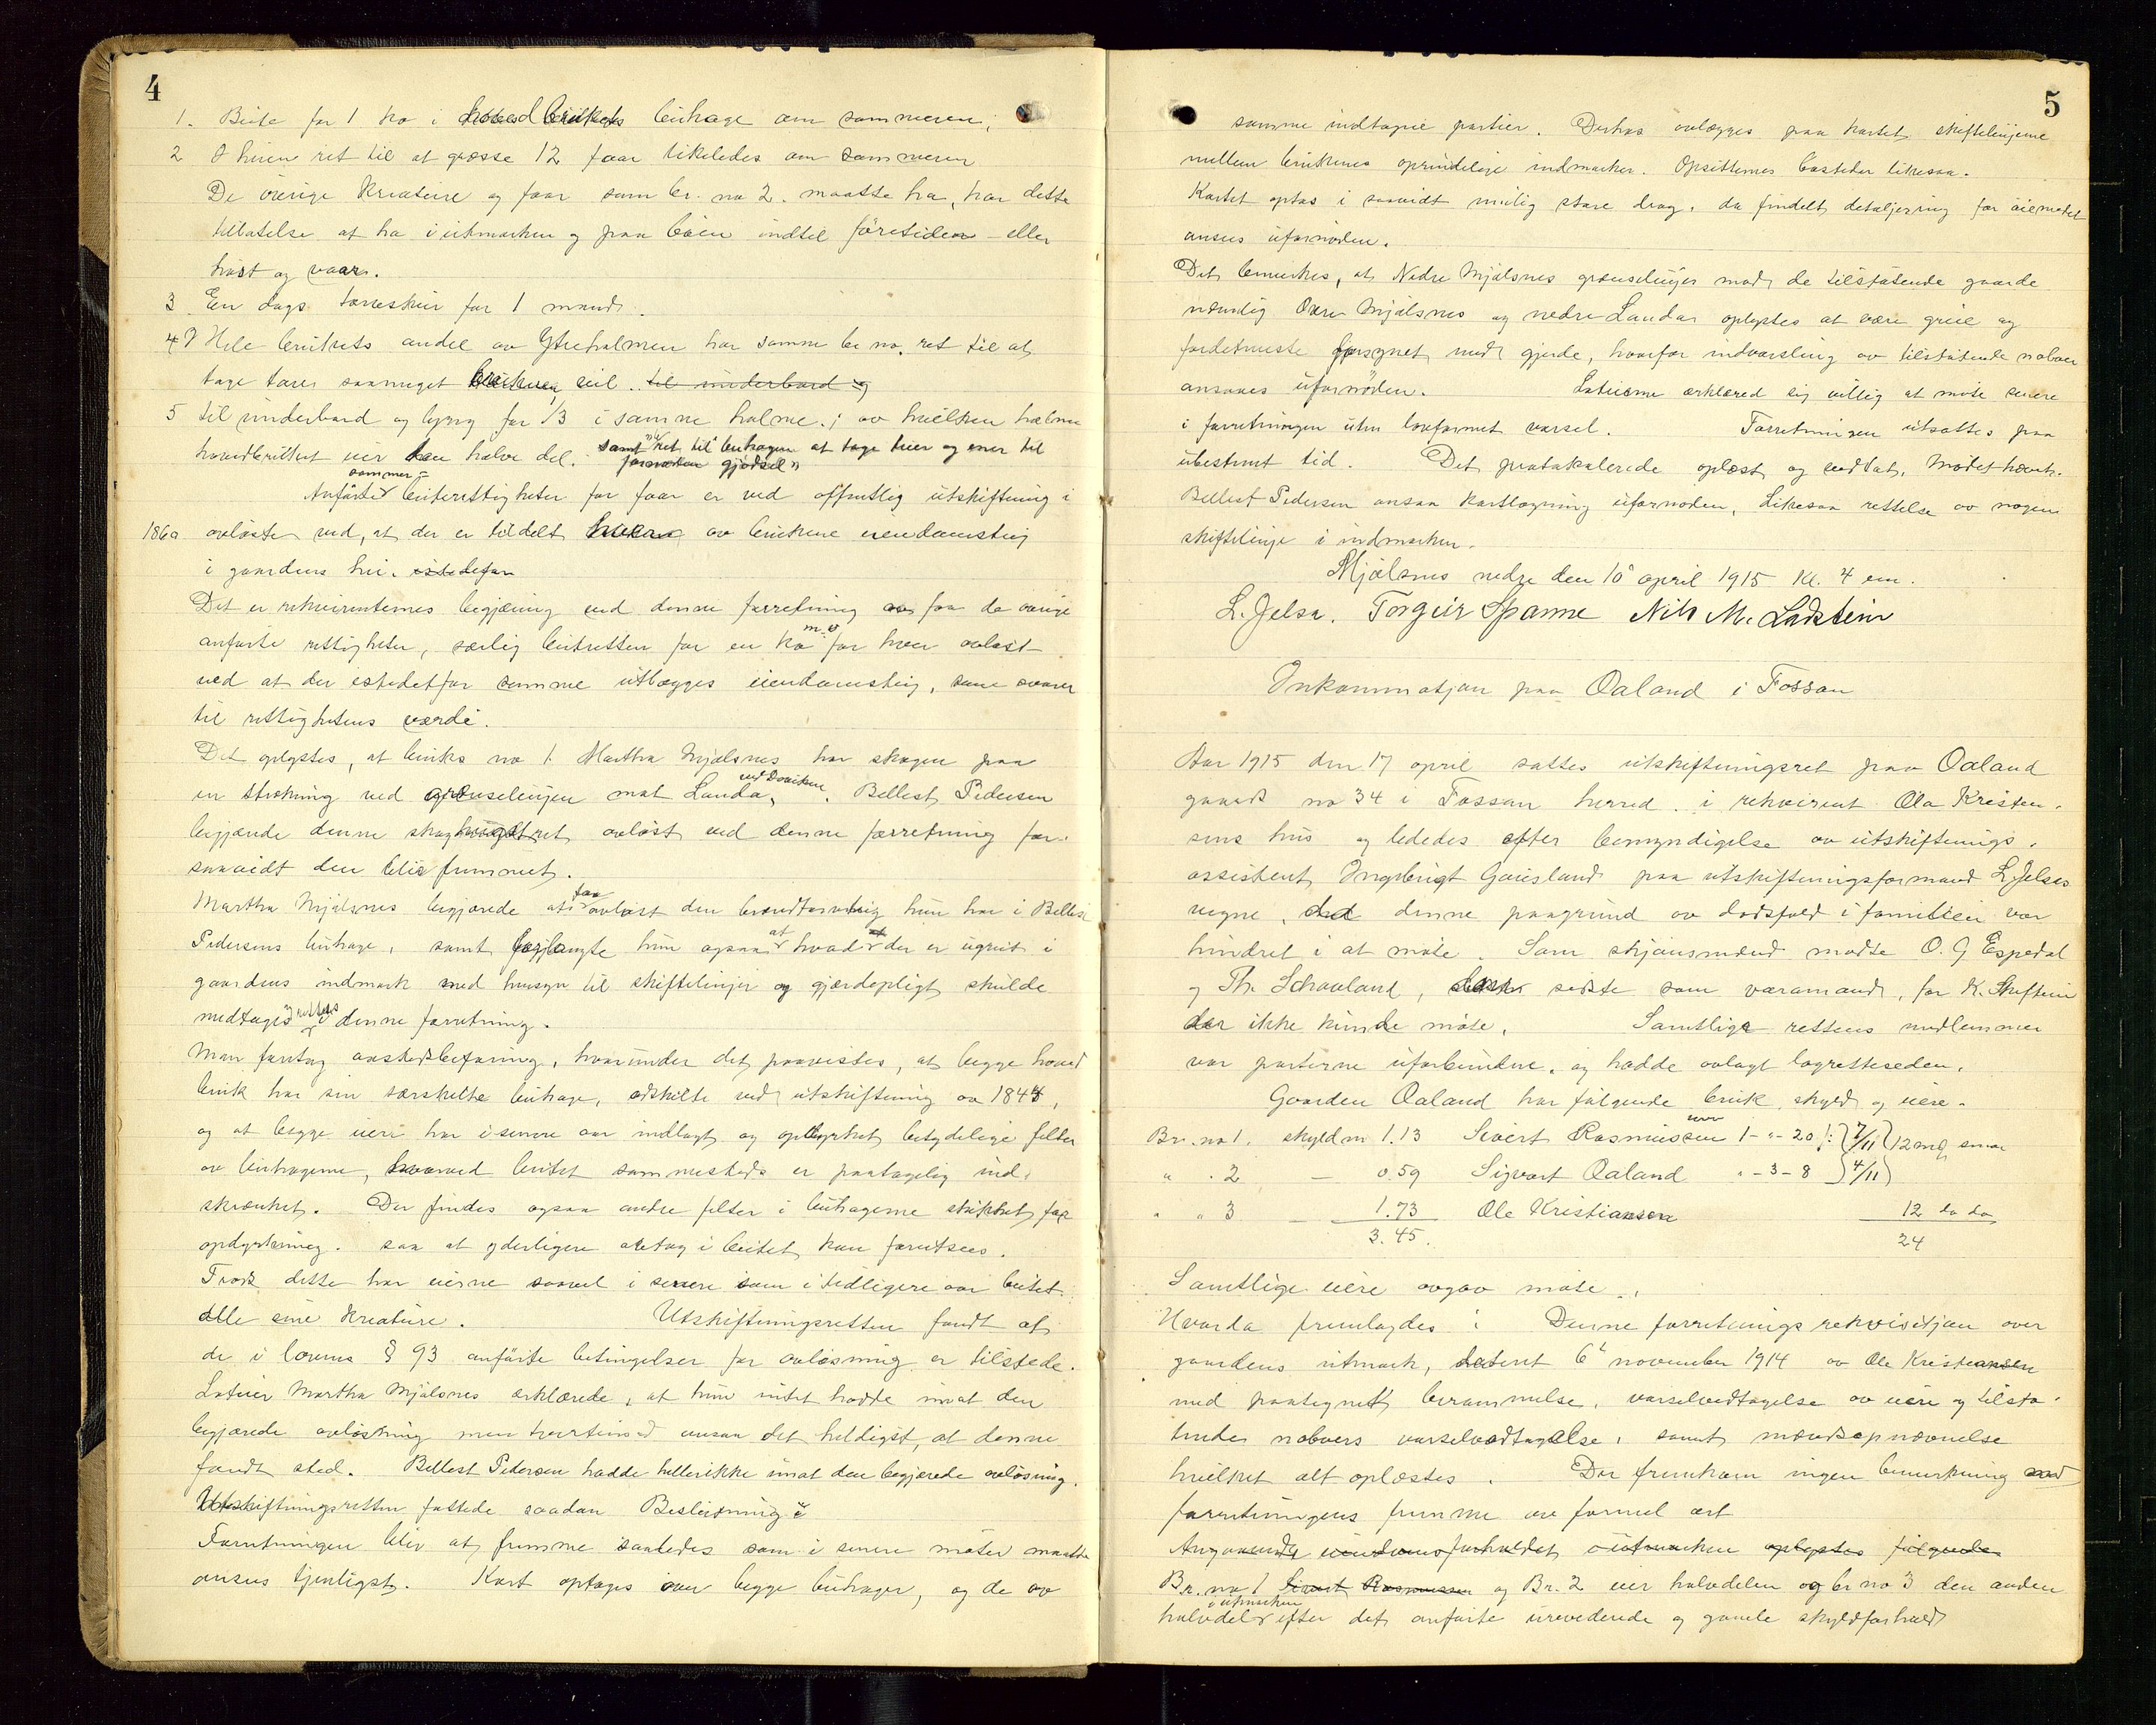 4
1. Beite for 1 ko i hovedbrukets buhage om sommeren;
2 I heien ret til at græsse 12 faar likeledes om sommeren
De øvrige kreature og faar som br. no 2. maatte ha, har dette
tillatelse at ha i utmarken og paa bøen indtil føretiden eller
høst og vaar.
3 En dags torveskur for 1 mand.
4 I Hele brukets andel av Ytreholmen har samme br no. ret til at
tage tarer saameget bruket vil. til underbord og
5 til underbord og lyng for 1/3 i samme holme; av hvilken holme
hovedbruket eier den halve del. samt "ret til buhagen at tage ener til
fornøden gjødsel"
sommer-
Anførte beiterettigheter for faar er ved offentlig utskiftning i
1860 avløste ved, at der er tildelt hver av brukene eiendomsteig
i gaardens hei. istedefor
Det er rekvirenternes begjæring ved denne forretning at faa de øvrige
m.v
anførte rettigheter, særlig beiteretten for en ko for hver avløst
ved at der istedetfor samme utlægges eiendomsteig, som svarer
til rettighetens værdi.
Det oplystes, at bruks no 1. Martha Mjølsnes har skogen paa
ved Døviken
en strækning ved grænselinjen mot Landa, . Bellest Pedersen
begjærde denne skoghugstret avløst ved denne forretning for-
saavidt den blir fremmet.
faa
Martha Mjølsnes begjærede at avløst den brændtorvteig hun har i Bellest
Pedersens buhage, samt forlangte hun ogsaa at hvad der er ugreit i
gaardens indmark med hensyn til skiftelinjer og gjerdepligt skulde
rettes
medtages i denne forretning.
Man foretog aastedsbefaring, hvorunder det paavistes, at begge hoved
bruk har sin særskilte buhage, adskilte ved utskiftning av 1844,
og at begge eiere har i senere aar indlagt og opdyrket betydelige felter
av buhagerne, hvorved beitet sammesteds er paatagelig ind-
skrænket. Der findes ogsaa andre felter i buhagerne skikket for
opdyrkning. saa at yderligere avtag i beitet kan forutsees.
Trods dette har eierne saavel i senere som i tidligere aar beitet
alle sine kreature. Utskiftningsretten fandt at
de i lovens § 93 anførte betingelser for avløsning er tilstede.
Lotteier Martha Mjølsnes erklærede, at hun intet hadde imot den
begjærede avløsning men tvertimod ansaa det heldigst, at denne
fandt sted. Bellest Pedersen hadde hellerikke imot den begjærede avløsning.
Utskiftningsretten fattede saadan Beslutning:
Forretningen blir at fremme saaledes som i senere møter maatte
ansees tjenligst. Kart optages over begge buhager, og de av
5
samme indtagne partier. Derhos avlægges paa kartet skiftelinjerne
mellem brukenes oprindelige indmarker. Opsitternes bosteder likesaa.
Kartet optas i saavidt mulig store drag, da findelt detaljering for øiemedet
ansees ufornøden.
Det bemerkes, at Nedre Mjølsnes grænselinjer mod de tilstøtende gaarde
nemlig Øvre Mjølsnes og nedre Landa oplystes at være greie og
fordetmeste forsynet med gjerde, hvorfor indvarsling av tilstøtende naboer
ansaaes ufornøden. Lotteierne erklæred sig villig at møte senere
i forretningen uten lovformet varsel. Forretningen utsattes paa
ubestemt tid. Det protokolerede oplæst og vedtat. Mødet hævet.
Bellest Pedersen ansaa kartlægning ufornøden, Likesaa rettelse av nogen
skiftelinje i indmarken.
Mjølsnes nedre den 10 april 1915 Kl. 4 em.
L. Jelsa. Torgeir Spanne Nils M. Ladstein
Inkaminatjon paa Oaland i Fossan
Aar 1915 den 17 april sattes utskiftningsret paa Oaland
gaards no 34 i Fossan herred. i rekvirent Ola Kristen-
sens hus og lededes efter bemyndigelse av utskiftnings-
assistent Ingebrigt Gauesland paa utskiftningsformand L. Jelsas
vegne, da denne paagrund av dødsfald i familien var
hindret i at møte. Som skjønsmænd mødte O. G Espedal
og Th. Schaaland, sidste som varamand, for K. Skuftein
der ikke kunde møte. Samtlige rettens medlemmer
var parterne uforbundne, og hadde avlagt lagretteeden.
Gaarden Oaland har følgende bruk, skyld og eiere-
Br. no 1. skyld m 1.13 Sivert Rasmussen 1-"-20 }: {7/11} 12 mrk smør
" " 2 — 0.59 Sigvart Oaland "-3-8 {4/11}
" " 3 — 1.73 Ole Kristiansen 12 do do
3.45. 24
Samtlige eiere avgav møte.
Hvorda fremlagdes i Denne forretnings rekvisisjon over
gaardens utmark, dateret 6' november 1914 av Ole Kristiansen
med paategnet berammelse, varselvedtagelse av eiere og tilstø-
tende naboers varselvedtagelse, samt mændsopnævnelse
hvilket alt oplæstes. Der fremkom ingen bemerkning mod
forretningens fremme av formel art
Angaaende eiendomsforholdet i utmarken oplystes følgende
Br. no 1 Sivert Rasmussen og Br. 2 eier halvdelen og br no 3 den anden
i utmarken
halvdel efter det anførte ureviderede og gamle skyldforhold